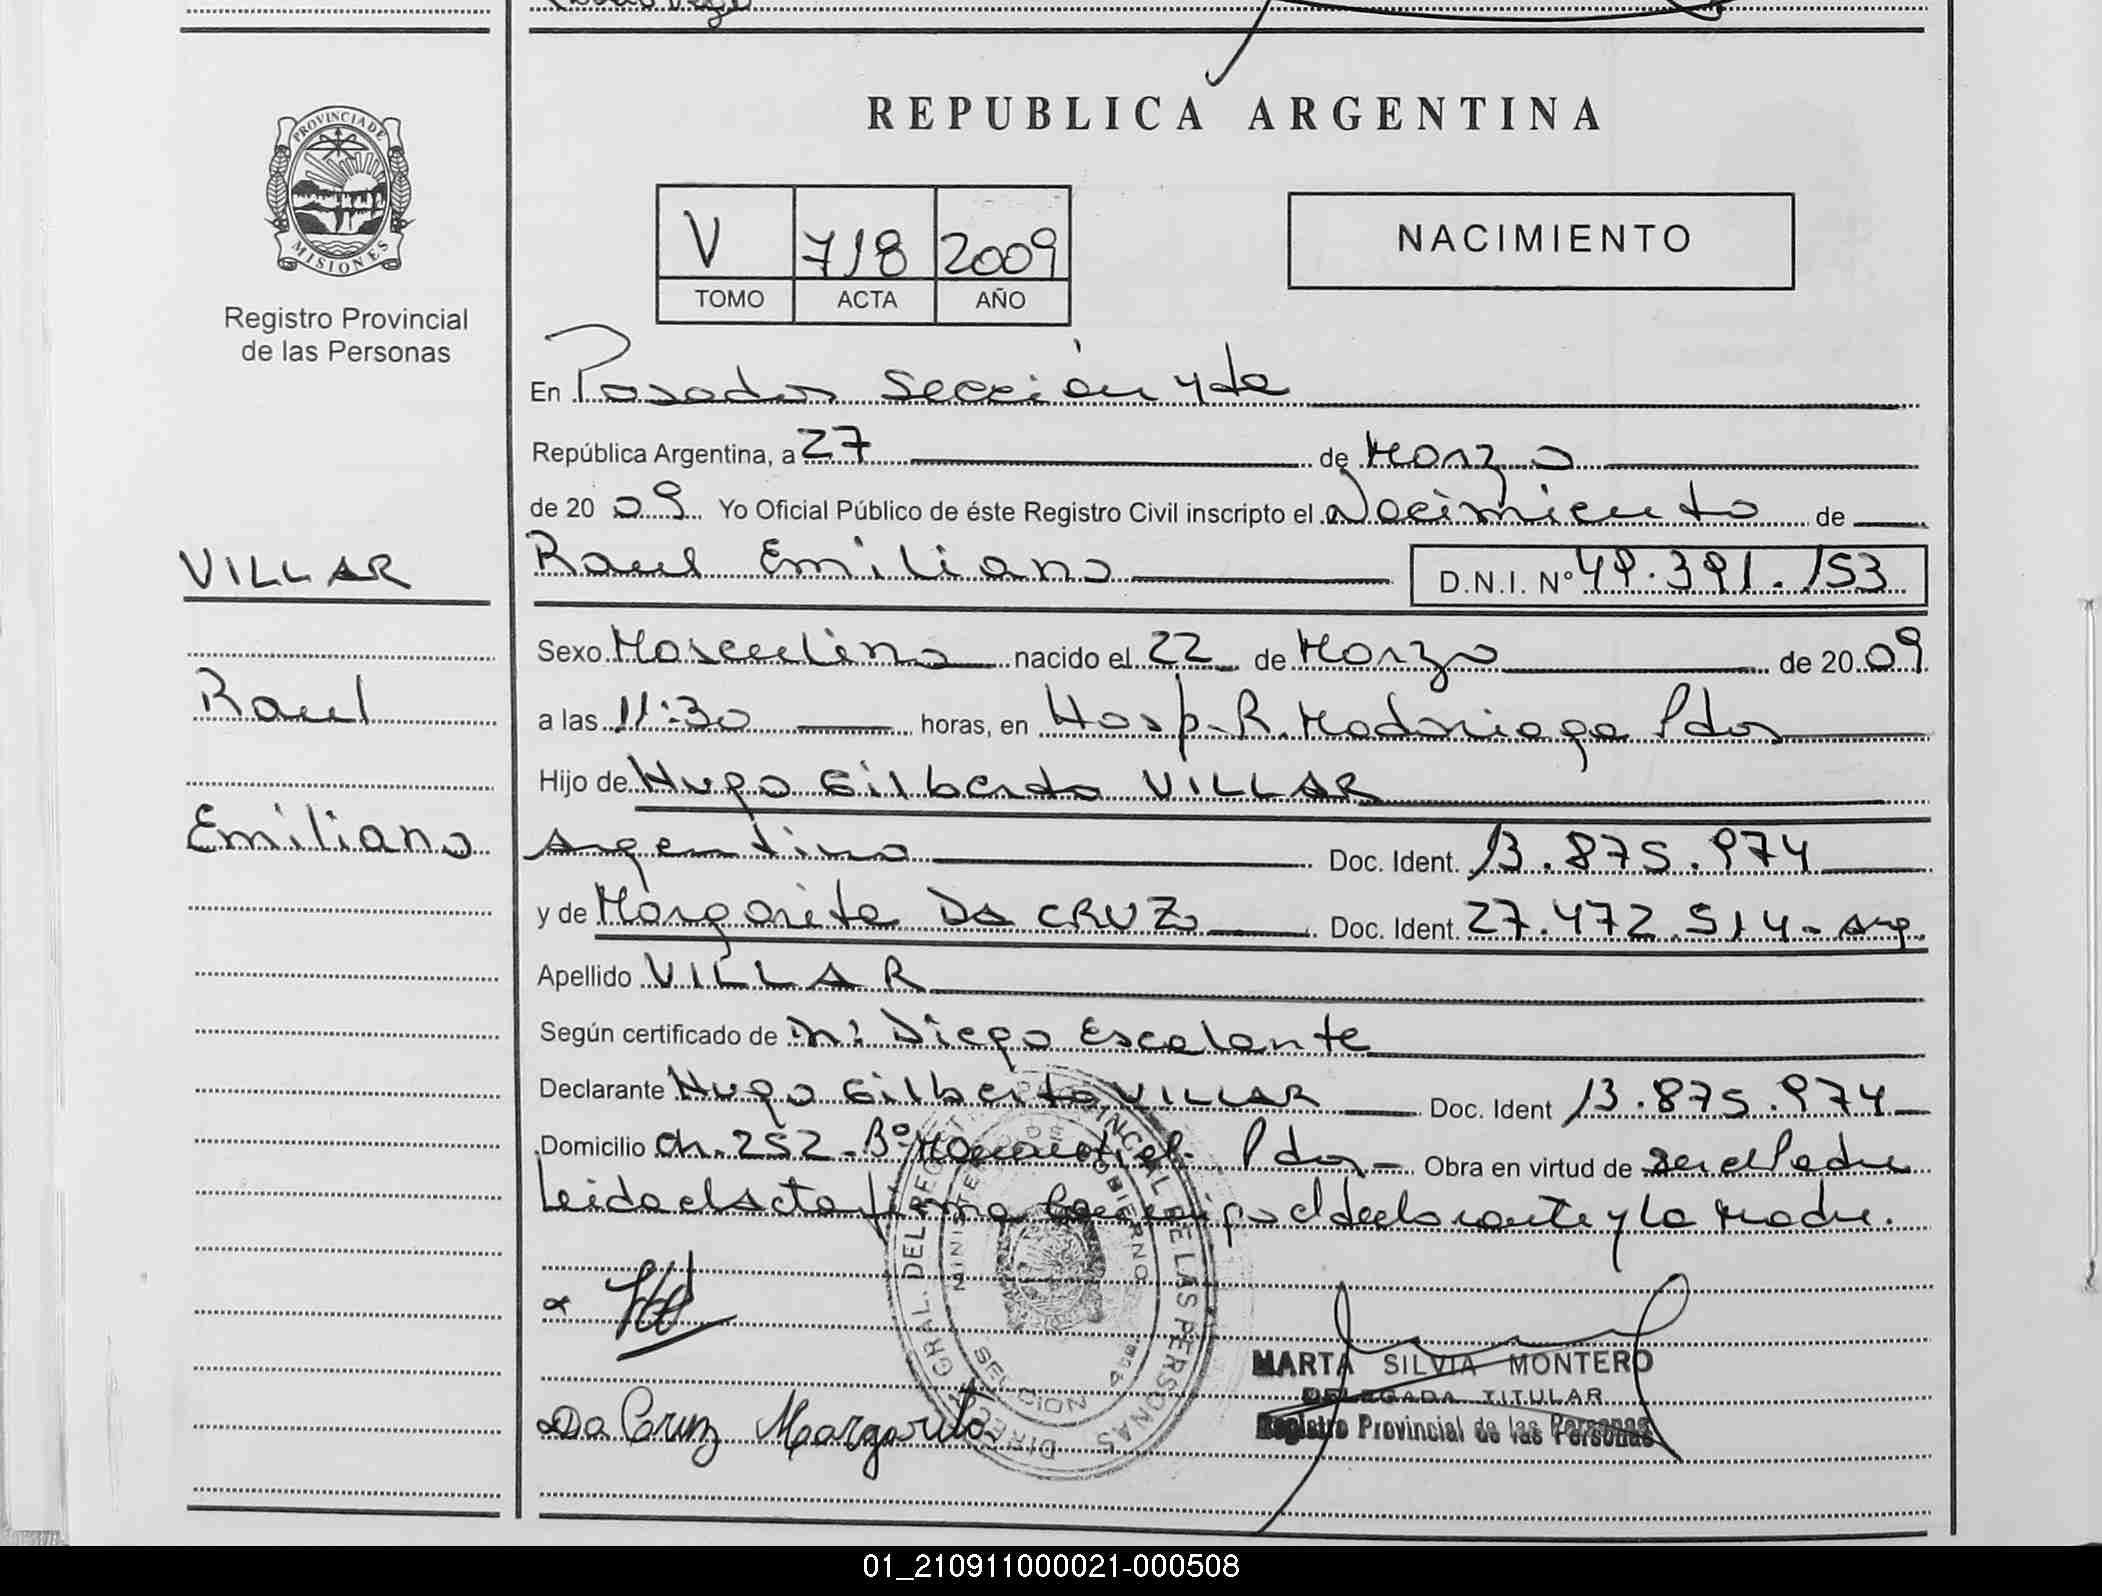 REPUBLICA ARGENTINA
PROVINCIA DE
MISIONES
Registro Provincial
de las Personas
V 718 2009
TOMO ACTA AÑO
NACIMIENTO
En Posadas Sección 4ta
República Argentina, a 27 de Marzo
de 2009 Yo Oficial Público de éste Registro Civil inscripto el Nacimiento de
VILLAR
Raul
Emiliano
Raul Emiliano D.N.I. Nº 49.391.153
Sexo Masculino nacido el 22 de Marzo de 2009
a las 11:30 horas, en Hosp. R. Madariaga Pdas
Hijo de Hugo Gilberto VILLAR
Argentino Doc. Ident. 13.875.974
y de Margarita Da CRUZ Doc. Ident. 27.472.514 - Arg.
Apellido VILLAR
Según certificado de Dr: Diego Escalante
Declarante Hugo Gilberto VILLAR Doc. Ident 13.875.974
Domicilio Ch. 252 - Bº Manantial - Pdas - Obra en virtud de ser el Padre
Leida el Acta firma conmigo el declarante y la Madre.
DIRECC. GRAL. DEL REGISTRO PROVINCIAL DE LAS PERSONAS
MINISTERIO DE GOBIERNO
SECCION 4ta.
Da Cruz Margarita
MARTA SILVIA MONTERO
DELEGADA TITULAR
Registro Provincial de las Personas
01_210911000021-000508